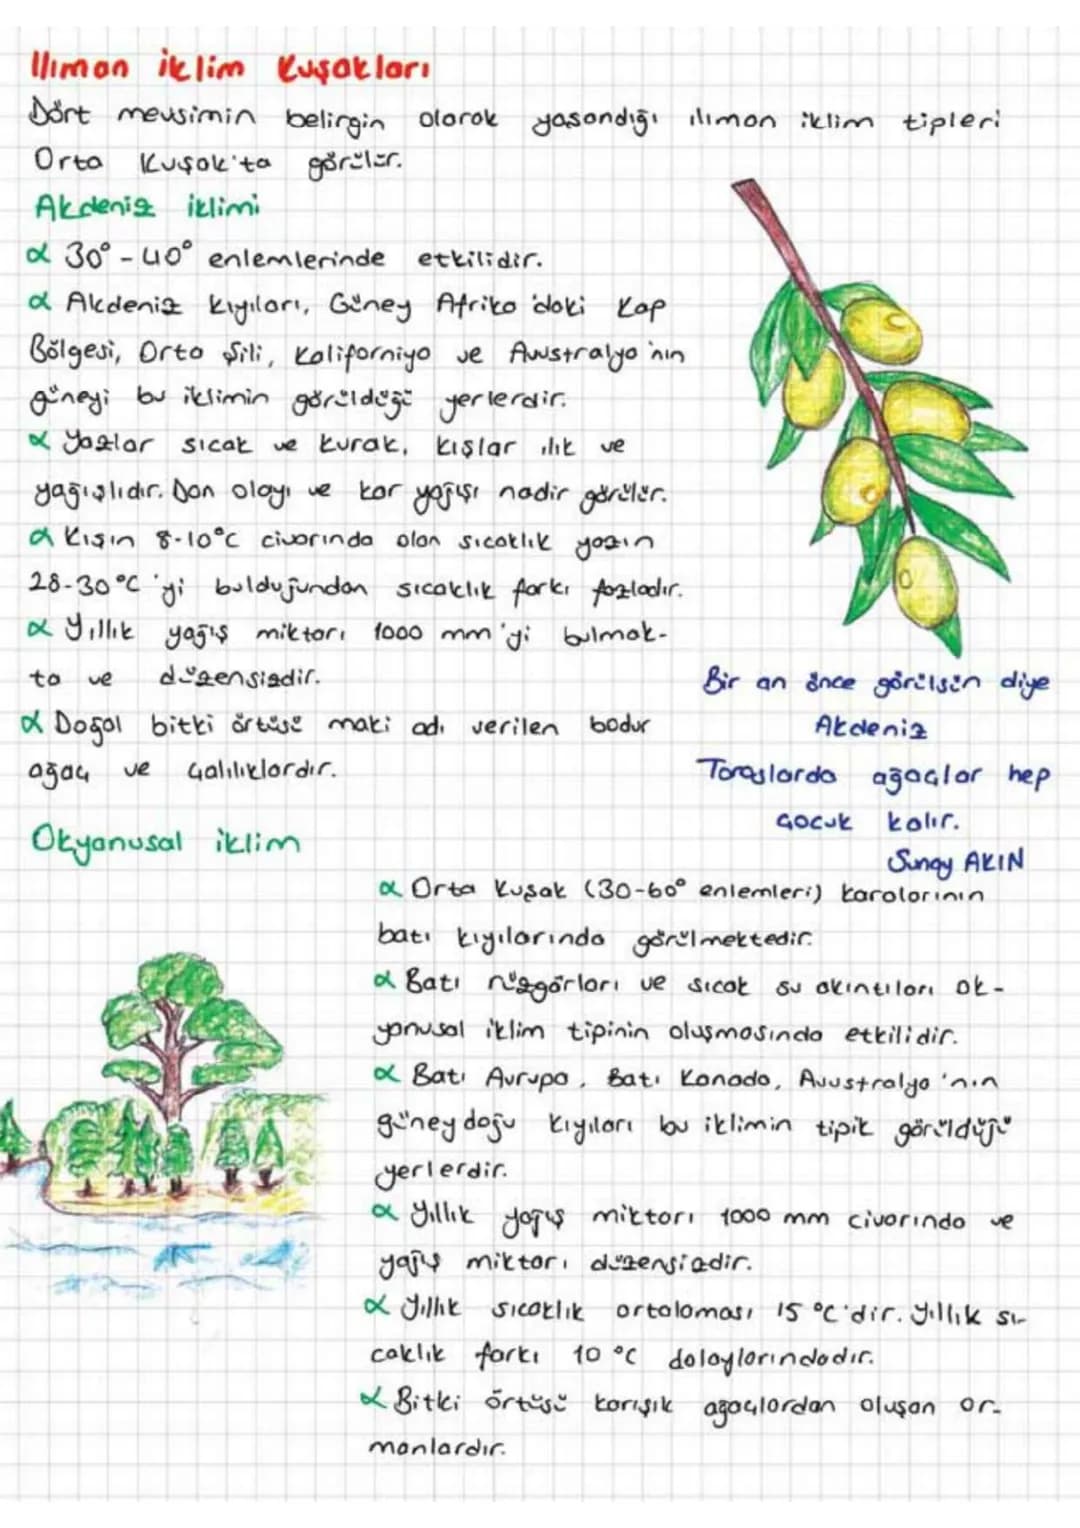 Ilıman iklim Kuşakları
Dört mevsimin belirgin olarak yaşandığı ılıman iklim tipleri
Orta Kuşak'ta görülür.
Akdeniz iklimi
α 30° - 40° enlemlerinde etkilidir.
α Akdeniz kıyıları, Güney Afrika'daki Kap
Bölgesi, Orta Şili, Kaliforniya ve Avustralya'nın
güneyi bu iklimin görüldüğü yerlerdir.
α Yazlar sıcak ve kurak, kışlar ılık ve
yağışlıdır. Don olayı ve kar yağışı nadir görülür.
α Kışın 8-10°C civarında olan sıcaklık yazın
28-30°C'yi bulduğundan sıcaklık farkı fazladır.
α Yıllık yağış miktarı 1000 mm'yi bulmak-
ta ve düzensizdir.
α Doğal bitki örtüsü maki adı verilen bodur
ağaç ve çalılıklardır.
Bir an önce görülsün diye
Akdeniz
Toroslarda ağaçlar hep
çocuk kalır.
Sunay AKIN
Okyanusal iklim
α Orta Kuşak (30-60° enlemleri) karalarının
batı kıyılarında görülmektedir.
α Batı rüzgârları ve sıcak su akıntıları ok-
yanusal iklim tipinin oluşmasında etkilidir.
α Batı Avrupa, Batı Kanada, Avustralya'nın
güneydoğu kıyıları bu iklimin tipik görüldüğü
yerlerdir.
α Yıllık yağış miktarı 1000 mm civarında ve
yağış miktarı düzensizdir.
α Yıllık sıcaklık ortalaması 15 °C'dir. Yıllık sı-
caklık farkı 10 °C dolaylarındadır.
α Bitki örtüsü karışık ağaçlardan oluşan or-
manlardır.